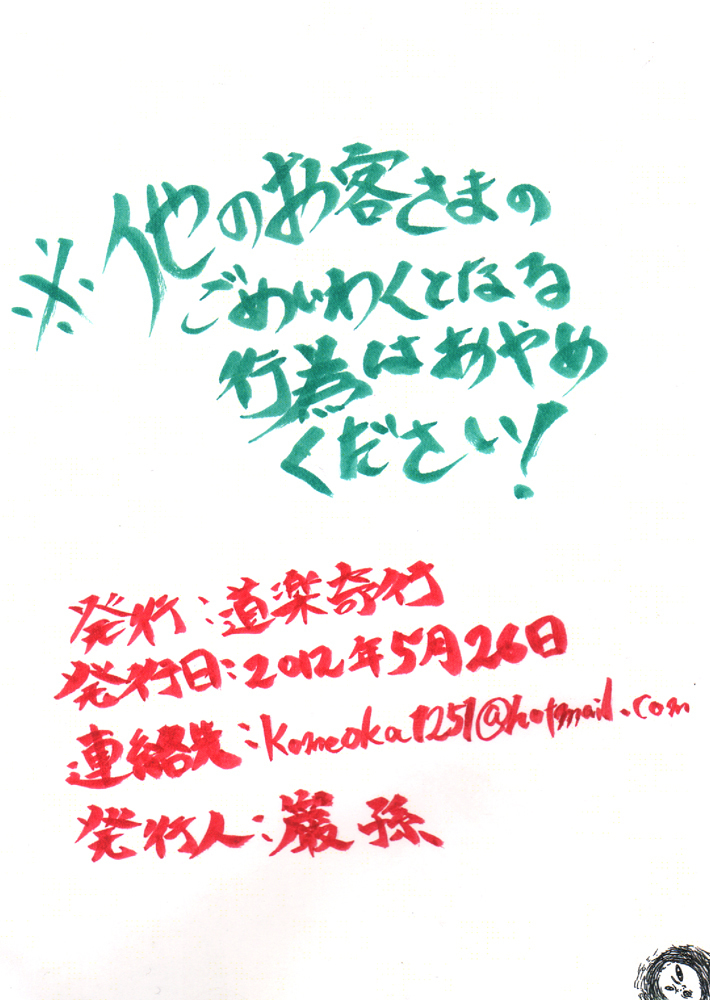 ※他のお客さまの
ごめいわくとなる
行為はおやめ
ください!
発行:道楽奇行
発行日:2012年5月26日
連絡先:komeoka1251@hotmail.com
発行人:巌孫